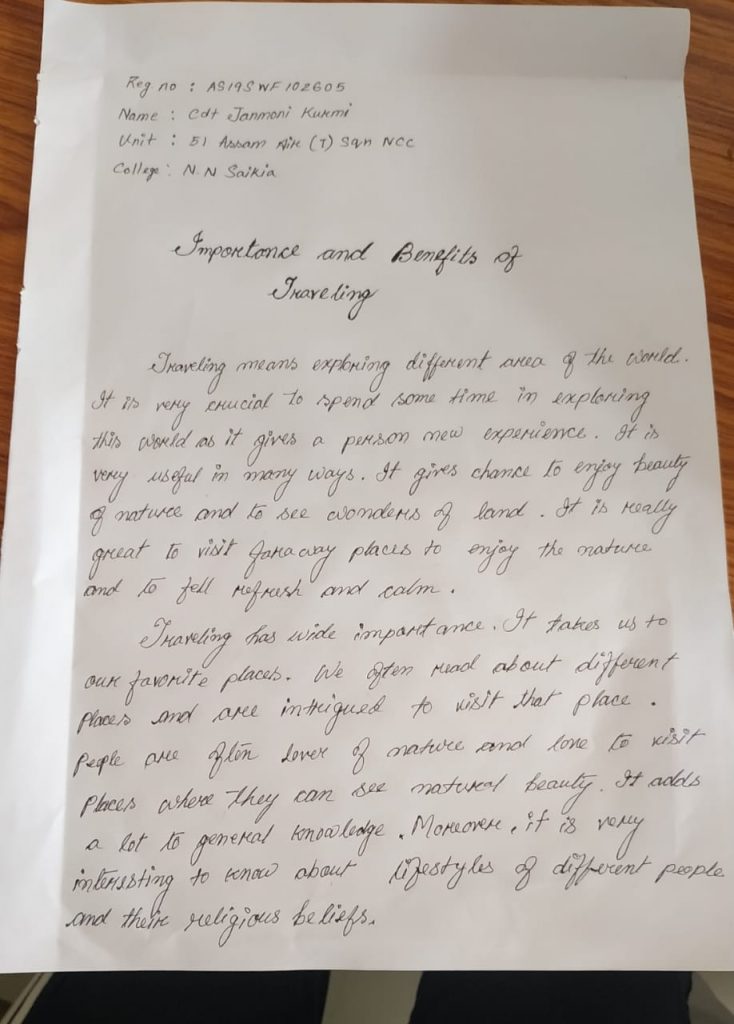 Reg no : AS19SWF102605
Name : Cdt Janmoni Kurmi
Unit : 51 Assam Air (T) Sqn NCC
College : N.N Saikia
Importance and Benefits of
Traveling
Traveling means exploring different area of the world.
It is very crucial to spend some time in exploring
this world as it gives a person new experience. It is
very useful in many ways. It gives chance to enjoy beauty
of nature and to see wonders of land. It is really
great to visit faraway places to enjoy the nature
and to fell refresh and calm.
Traveling has wide importance. It takes us to
our favorite places. We often read about different
places and are intrigued to visit that place.
People are often lover of nature and love to visit
places where they can see natural beauty. It adds
a lot to general knowledge. Moreover, it is very
interesting to know about lifestyles of different people
and their religious beliefs.